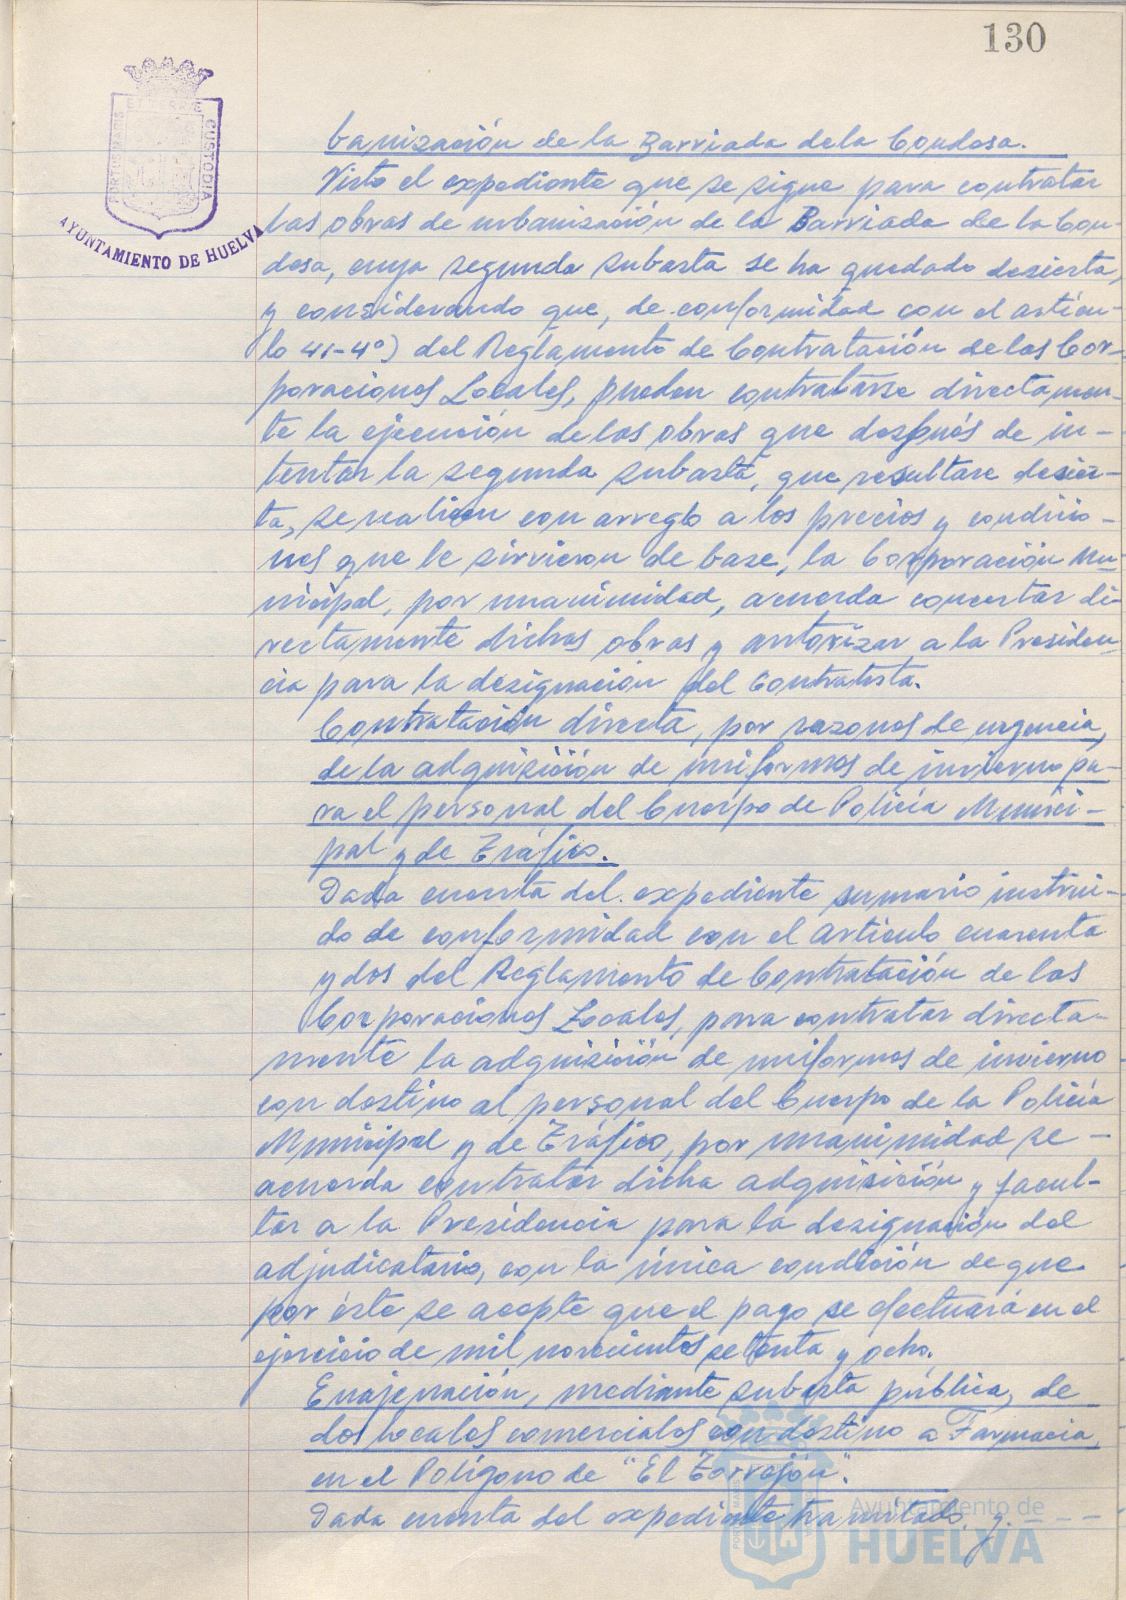 130
ET TERRE
PORTUS MARIS
CUSTODIA
AYUNTAMIENTO DE HUELVA
banización de la Barriada de la Condesa.
Visto el expediente que se sigue para contratar
las obras de urbanización de la Barriada de la Con-
desa, cuya segunda subasta se ha quedado desierta,
y considerando que, de conformidad con el artícu-
lo 41-4º) del Reglamento de Contratación de las Cor-
poraciones Locales, pueden contratarse directamen-
te la ejecución de las obras que después de in-
tentar la segunda subasta, que resultare desier-
ta, se realicen con arreglo a los precios y condicio-
nes que le sirvieron de base, la Corporación Mu-
nicipal, por unanimidad, acuerda concertar di-
rectamente dichas obras y autorizar a la Presiden-
cia para la designación del Contratista.
Contratación directa, por razones de urgencia,
de la adquisición de uniformes de invierno pa-
ra el personal del Cuerpo de Policía Munici-
pal y de Tráfico.
Dada cuenta del expediente sumario instrui-
do de conformidad con el artículo cuarenta
y dos del Reglamento de Contratación de las
Corporaciones Locales, para contratar directa-
mente la adquisición de uniformes de invierno
con destino al personal del Cuerpo de la Policía
Municipal y de Tráfico, por unanimidad se-
acuerda contratar dicha adquisición y facul-
tar a la Presidencia para la designación del
adjudicatario, con la única condición de que
por éste se acepte que el pago se efectuará en el
ejercicio de mil novecientos setenta y ocho.
Enajenación, mediante subasta pública, de
dos locales comerciales con destino a Farmacia,
en el Polígono de "El Torrejón".
Dada cuenta del expediente tramitado, y. - - -
Ayuntamiento de
HUELVA